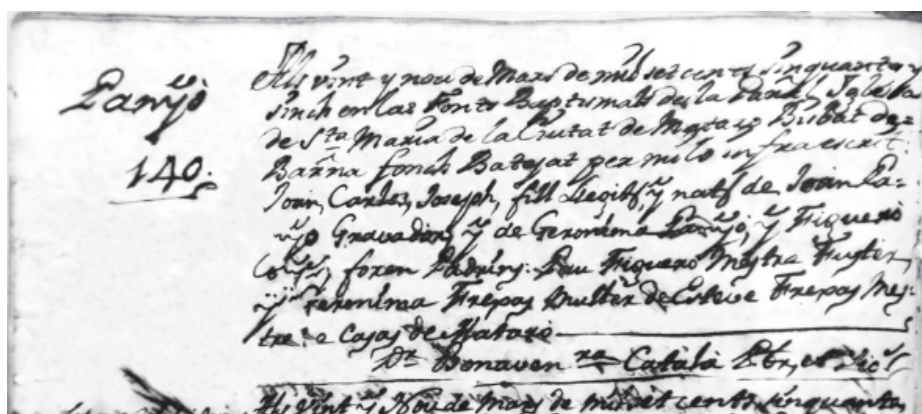 Panyó
140.
Als vint y nou de Mars de mil set cents sinquanta y
sinch en las Fonts Baptismals de la Parãl Iglesia
de Sta Maria de la Ciutat de Mataró Bisbat de=
Barña fonch Batejat per mi lo infraescrit:
Joan, Carles, Joseph, fill Llegitf y natf de Joan Pa-
nyó Gravador, y de Geronima Panyó, y Figueró
Conjs, foren Padrins: Pau Figueró Mestra Fuster,
y Geronima Frepas Muller de Esteve Frepas Mes-
tre de Casas de Mataró
Dr Bonaven ra Catalá Pbr, et Vic
Als vint y Nou de Mars de mil set cents sinquanta